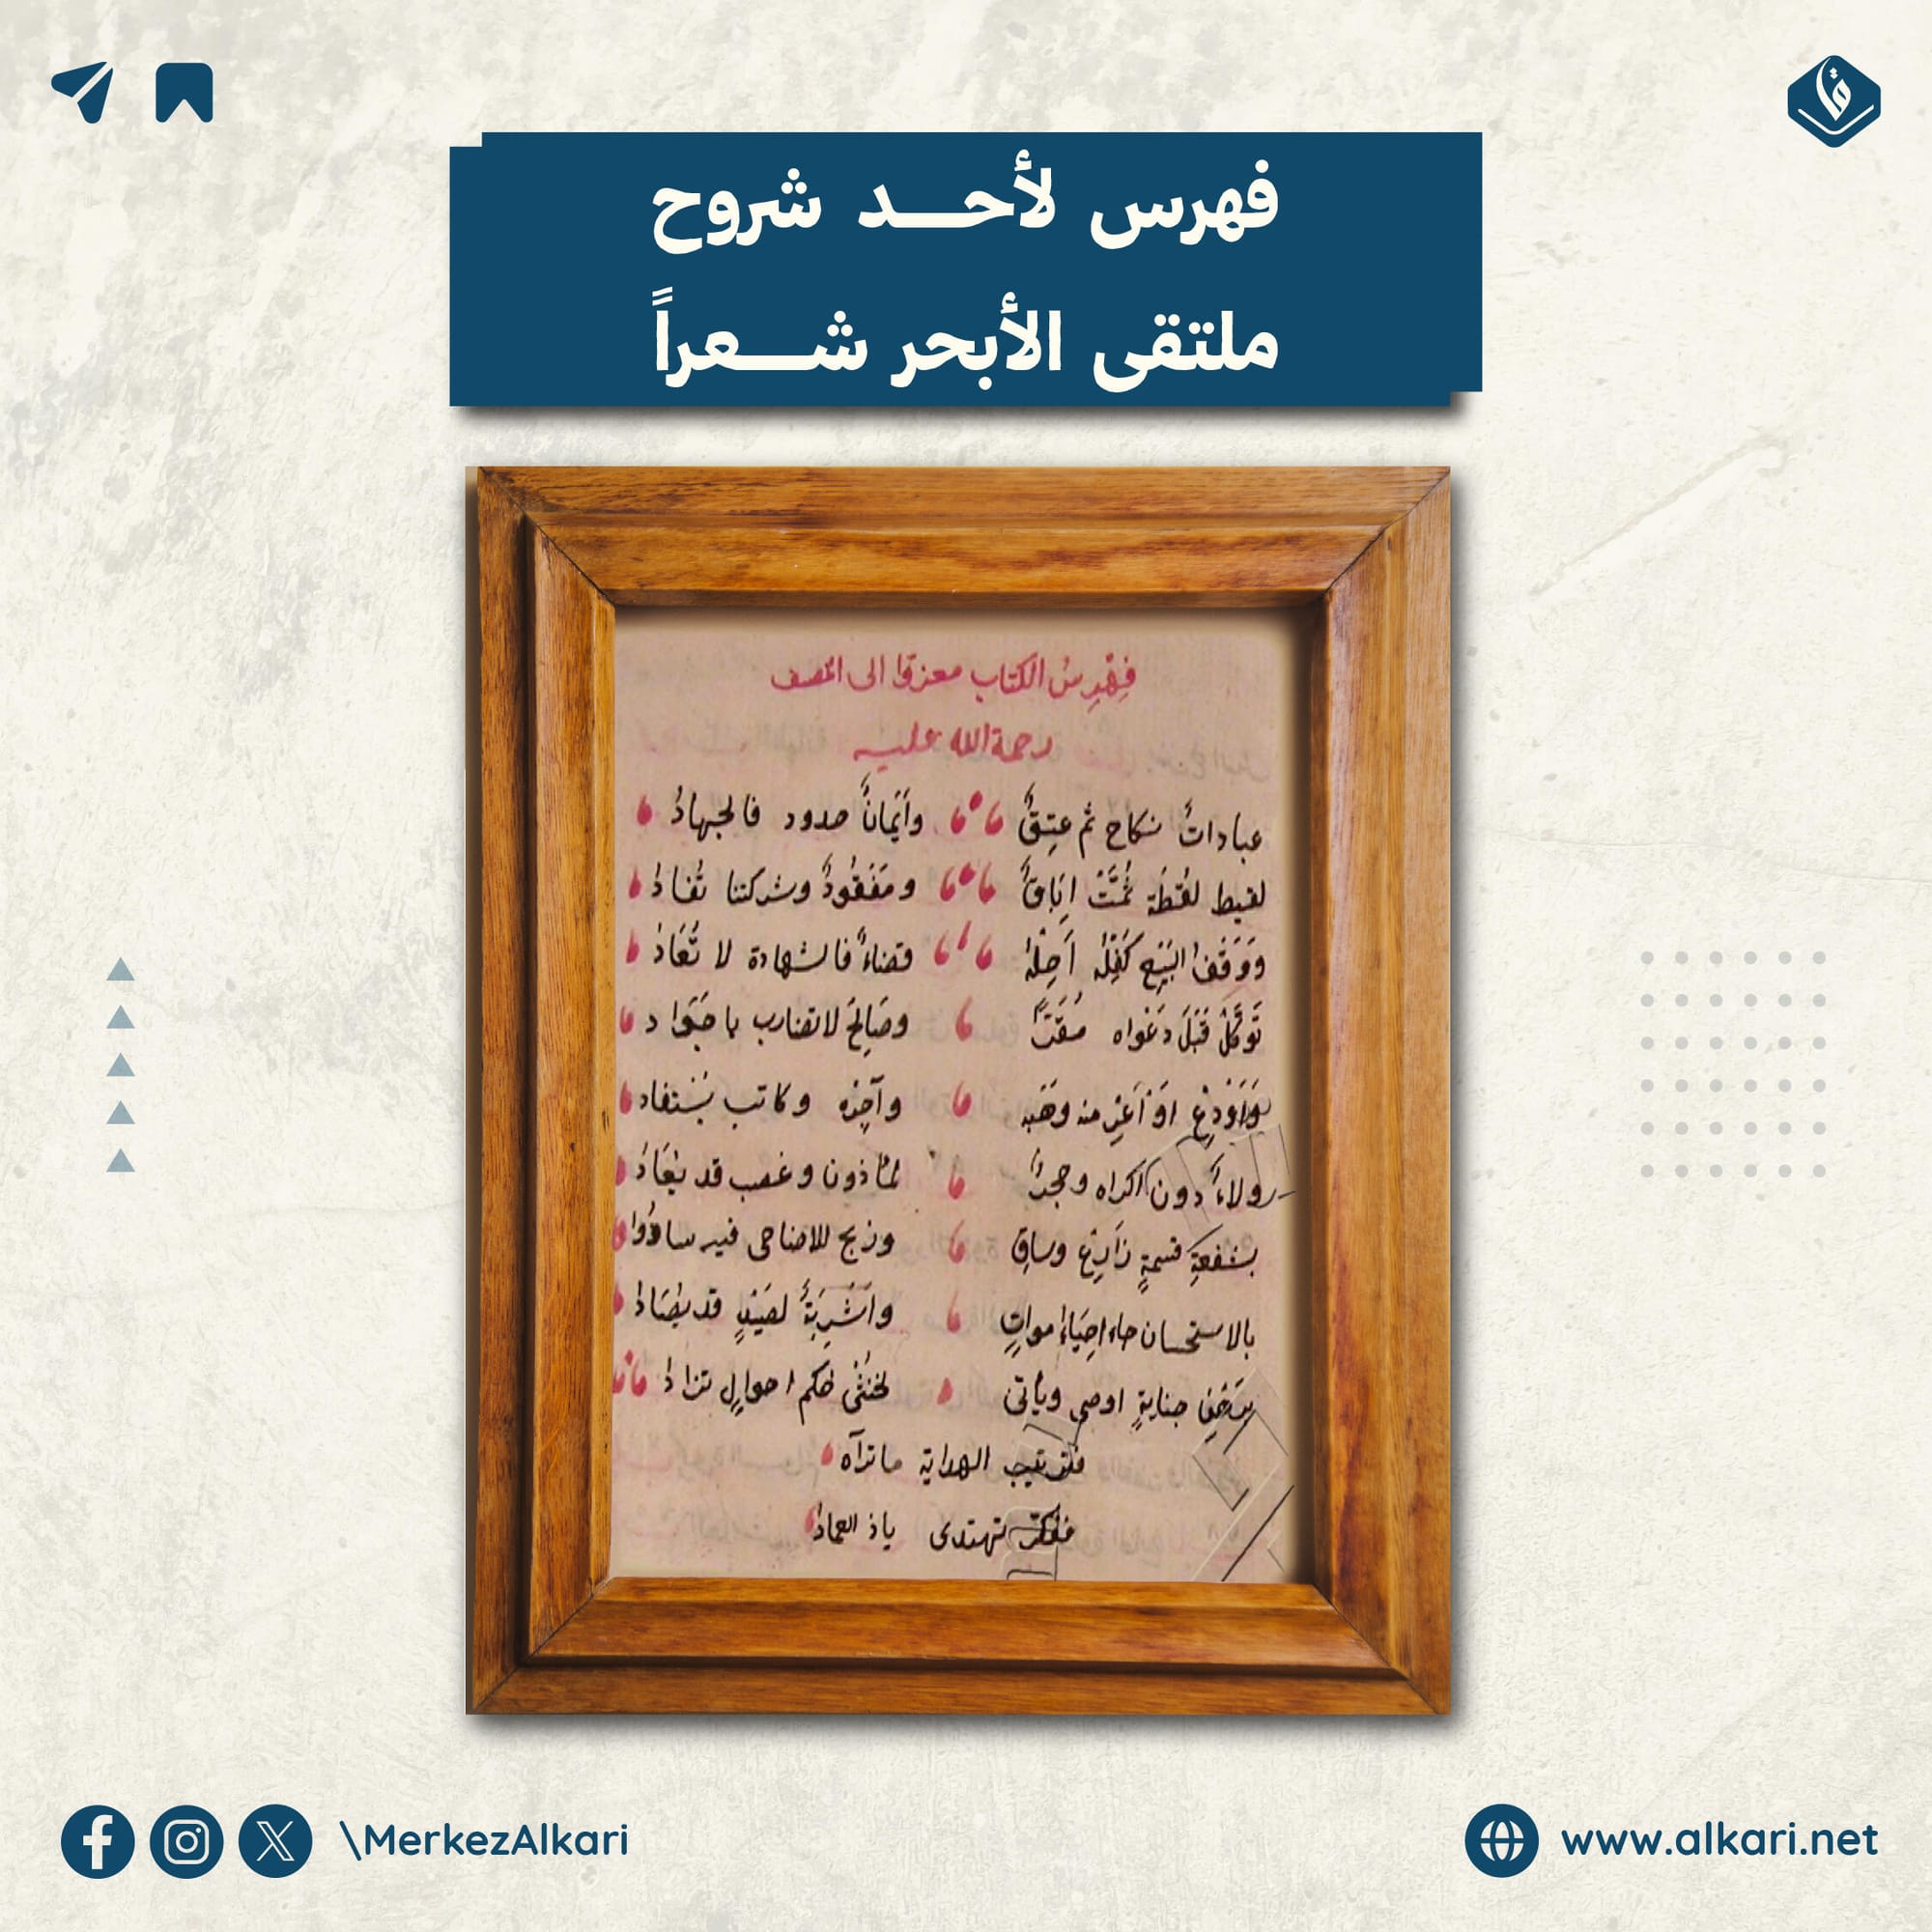 فهرس لأحد شروح
ملتقى الأبحر شعراً
فِهْرِسُ الكتاب معزوّا الى المصنف
رحمة الله عليه
عباداتٌ نكاح ثم عِتِقٌ وأَيْمانٌ حدود فالجهادُ
لقيط لُقْطَة ثُمَّتْ اِبَاقٌ ومَفْقُودٌ وشركتنا تُفادُ
وَوَقْفُ البَيْعِ كَفِّلْهُ أَحِلْهُ قضاءٌ فالشهادة لا تُعَادُ
تَوَكَّلْ قَبْلَ دَعْواه مُقِرًّا وصَالِحْ لا تضارب يا جَوَاد
وَأَوْدِعْ اَوْ أَعِرْ منه وهَبْه وآجِرْه وكاتب يُسْتفاد
ولاءً دون اكراه وحجرٌ لمأذون وغصب قد يُعَادُ
بشفعةِ قسمةٍ زَارِعْ وساقِ وذبح للاضاحى فيه سادُوا
بالاستحسان جاء اِحْيَاءُ مواتٍ واَشْرِبَةٌ لصَيْدٍ قد يُصَادُ
جنايةٍ اوصى ويأتى لخُنْثى حكم احوالٍ تزادُ
فترتيب الهداية ما تراه
ففكّر تهتدى ياذ العمادُ
\MerkezAlkari
www.alkari.net